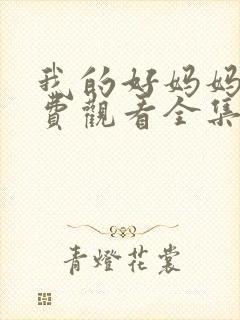 我的好妈妈
費觀看全集
青燈花裳